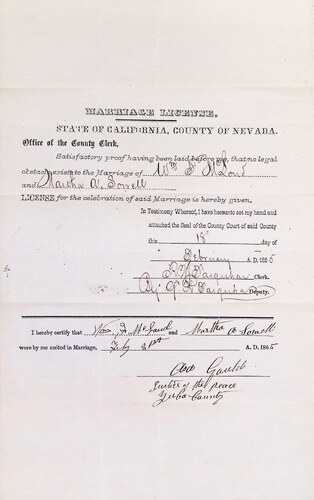 MARRIAGE LICENSE.
STATE OF CALIFORNIA, COUNTY OF NEVADA.
Office of the County Clerk,
Satisfactory proof having been laid before me that no legal
obstacle exists to the Marriage of Wm F
and Martha A. Sowell
LICENSE for the celebration of said Marriage is hereby given.
In Testimony Whereof, I have hereunto set my hand and
attached the Seal of the County Court of said County
this 18th day of
February A. D. 1865
Farquhar Clerk.
By Farquhar Deputy.
I hereby certify that Wm F and Martha A Sowell
were by me united in Marriage, Feby 21st A. D. 1865
Justice of the peace
Yuba County